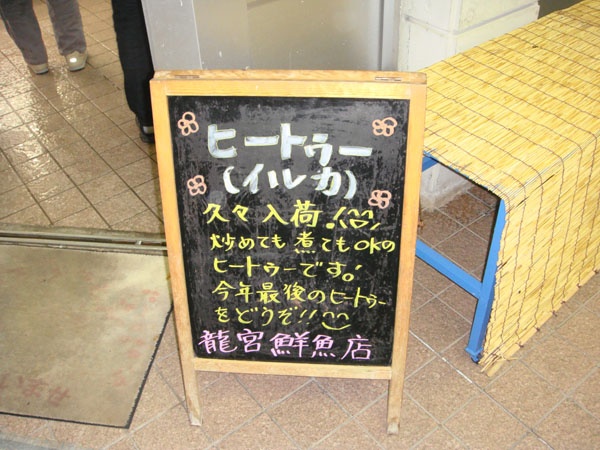 ヒートゥー
(イルカ)
久々入荷!
炒めても煮てもOKの
ヒートゥーです!
今年最後のヒートゥー
をどうぞ!!
龍宮鮮魚店